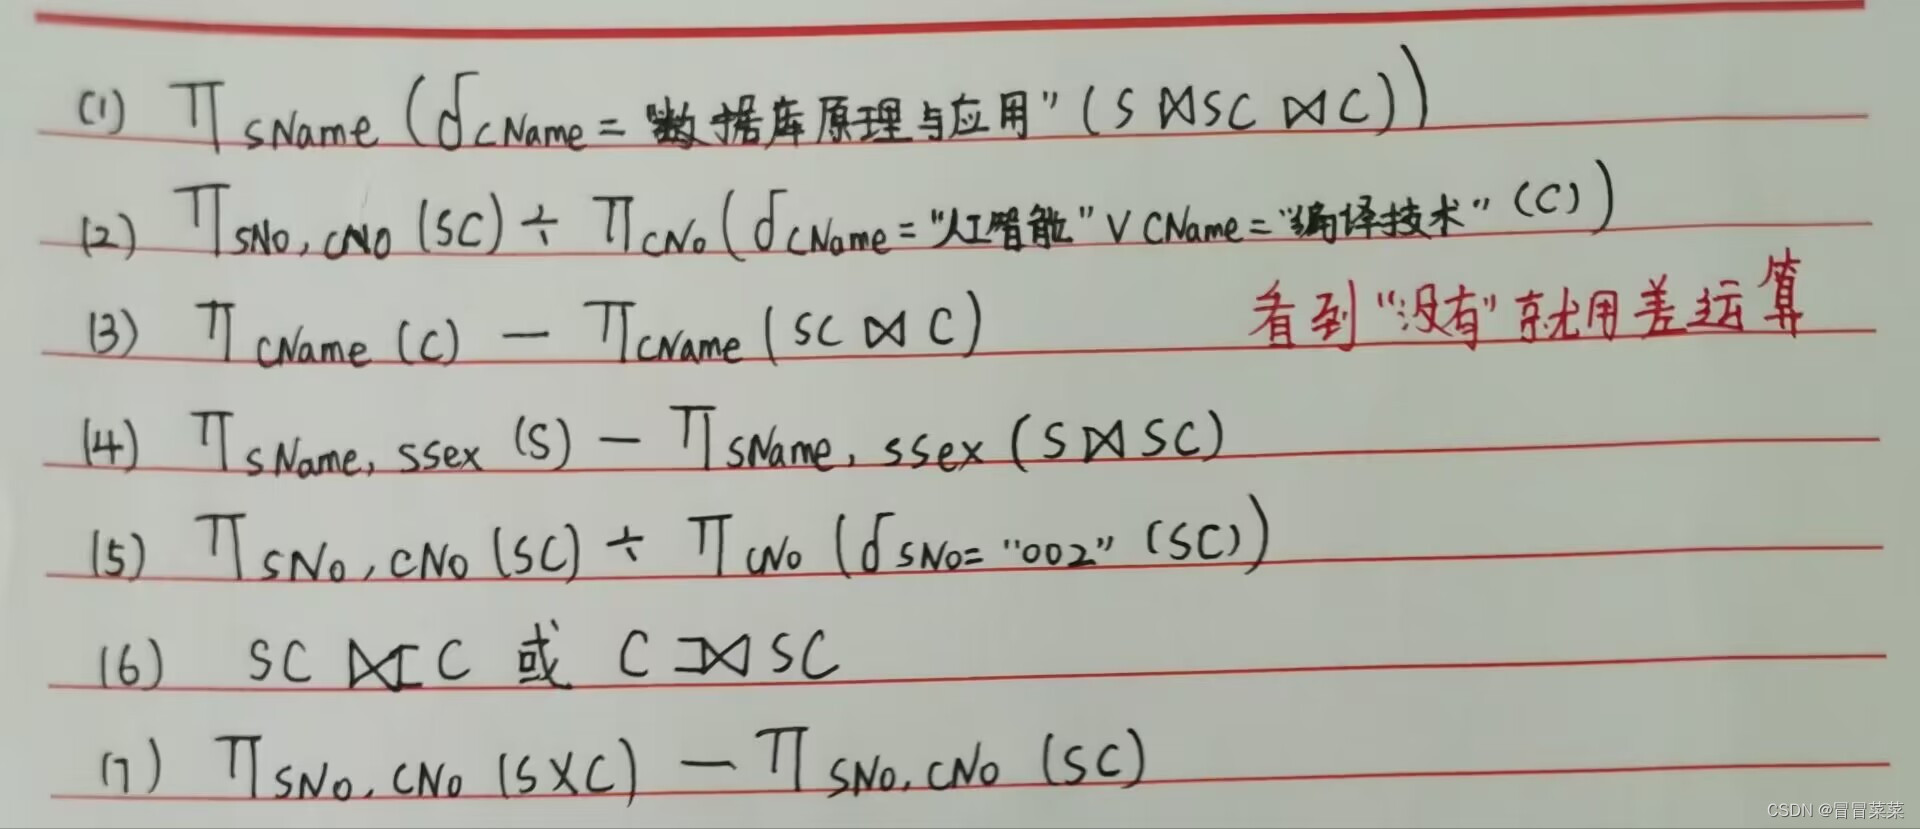 (1) π sName (σ cName = "数据库原理与应用" (S ⋈ SC ⋈ C))
(2) π sNo, cNo (SC) ÷ π cNo (σ cName = "人工智能" ∨ cName = "编译技术" (C))
(3) π cName (C) — π cName (SC ⋈ C) 看到"没有"就用差运算
(4) π sName, ssex (S) — π sName, ssex (S ⋈ SC)
(5) π sNo, cNo (SC) ÷ π cNo (σ sNo = "002" (SC))
(6) SC ⟖ C 或 C ⟕ SC
(7) π sNo, cNo (S X C) — π sNo, cNo (SC)
CSDN @冒冒菜菜